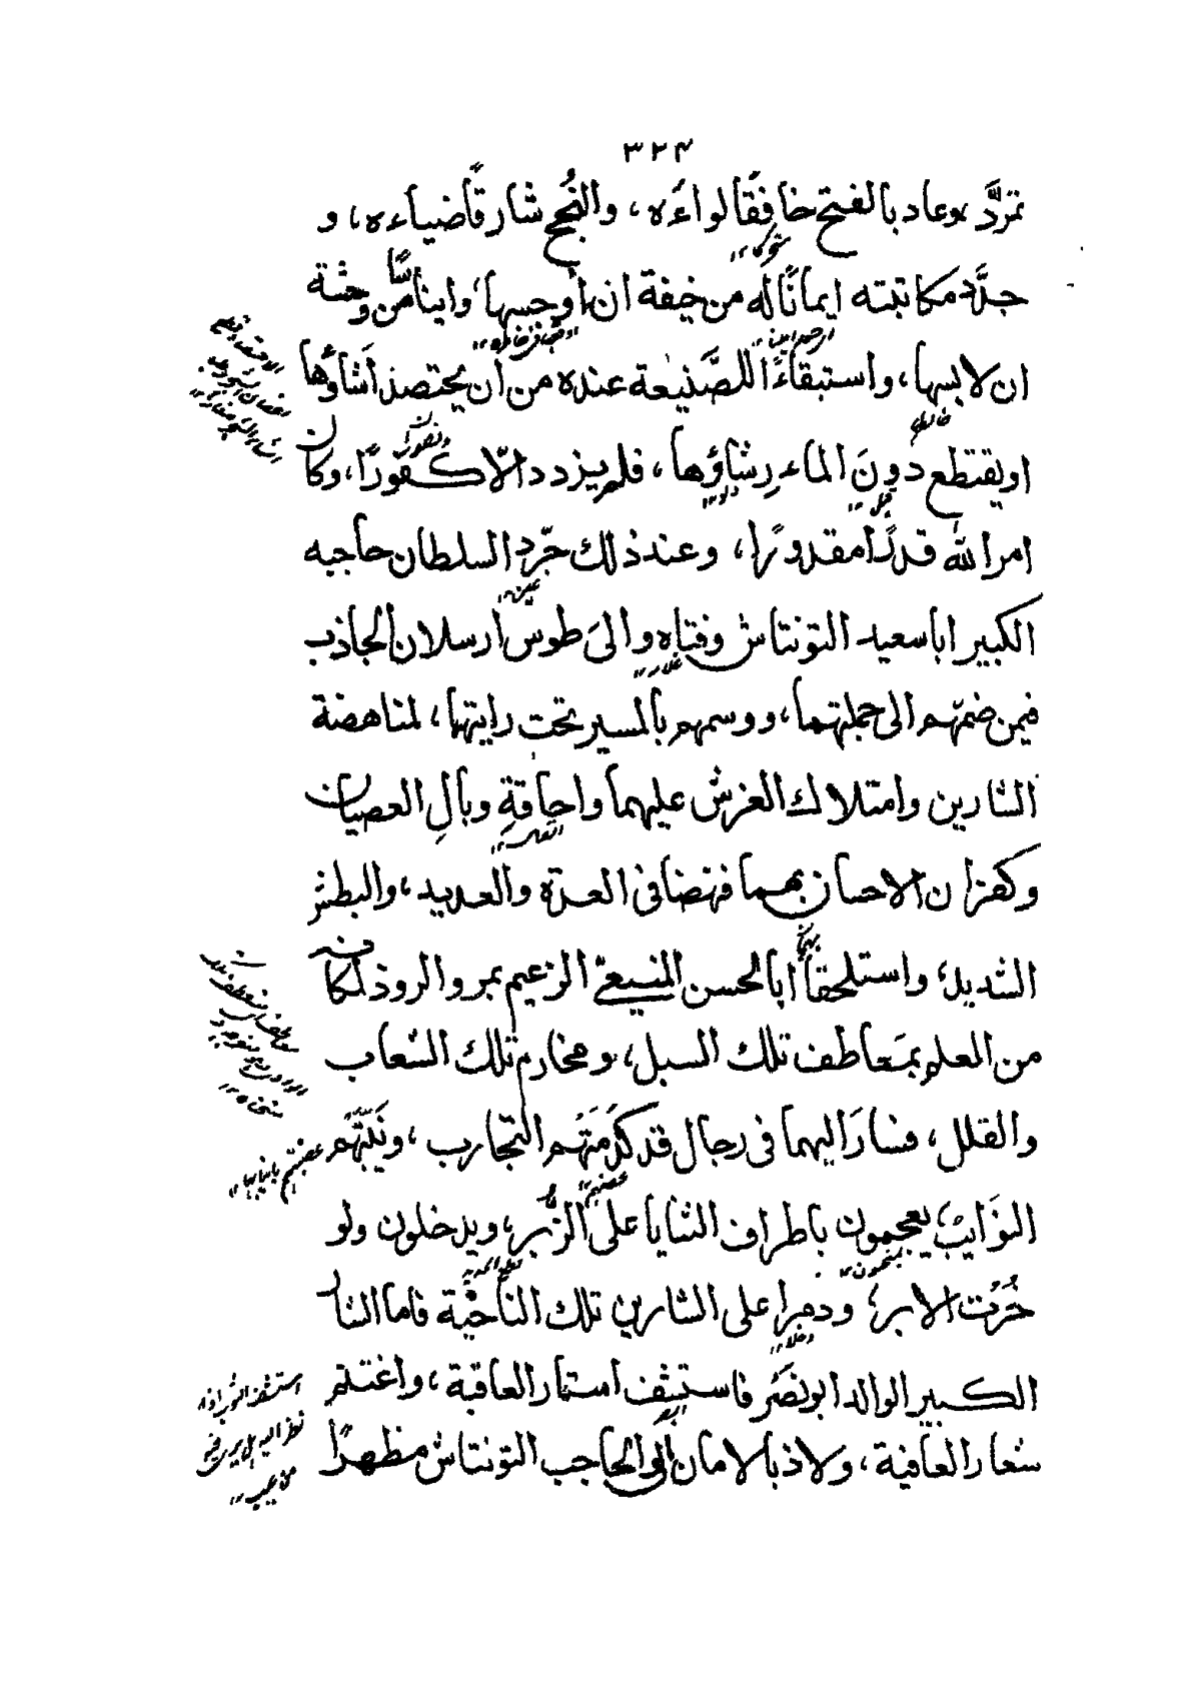 ٣٢٤
تمرَّد، وعاد بالفتح خافقًا لواءَه، والنُجح شارقًا ضياءه، و
جدَّد مكاتبته ايمانًا له من خيفة ان اوجسها، وايناسًا من وحشة
ان لابسها، واستبقاءً للصَّنيعة عنده من ان يحتصد اَشاؤُها
او يقتطع دونَ الماء رِشاؤها، فلم يزدد الّا كفورًا، وكان
امر الله قدرًا مقدورًا، وعند ذلك جرّد السلطان حاجبه
الكبير ابا سعيد التونتاش وفتاه والىَ طوس ارسلان الجاذب
فيمن ضمّهم الى جملتهما، ووسمهم بالمسير تحت رايتهما، لمناهضة
الشارين وامتلاك الغرش عليهما واحاقةِ وبالِ العصيان
وكفران الاحسان بهما فنهضا فى العدّة والعديد، والبطش
الشديد، واستلحقا ابا الحسن المنيعىّ الزعيم بمرو الروذ لمكانه
من العلم بمَعاطف تلك السبل، ومخارم تلك الشعاب
والقلل، فسارَ اليهما فى رجال قد كَدَمَتْهُم التجارب، ونَيَّبَتْهُم
النوَايبُ، يعجمون باطراف الثنايا علىَ الزُّبر، ويدخلون ولو
خُرْتَ الابر، ودمرا على الشارين تلك الناحية فاما الشار
الكبير الوالد ابو نصَر فاستشف استار العاقبة، واغتنم
شعار العافية، ولاذ بالامان الى الحاجب التونتاش مظهرًا
عضتهم بانيابها
استشف الثوب اذا
نظر اليه هل يرى فيه
من عيب